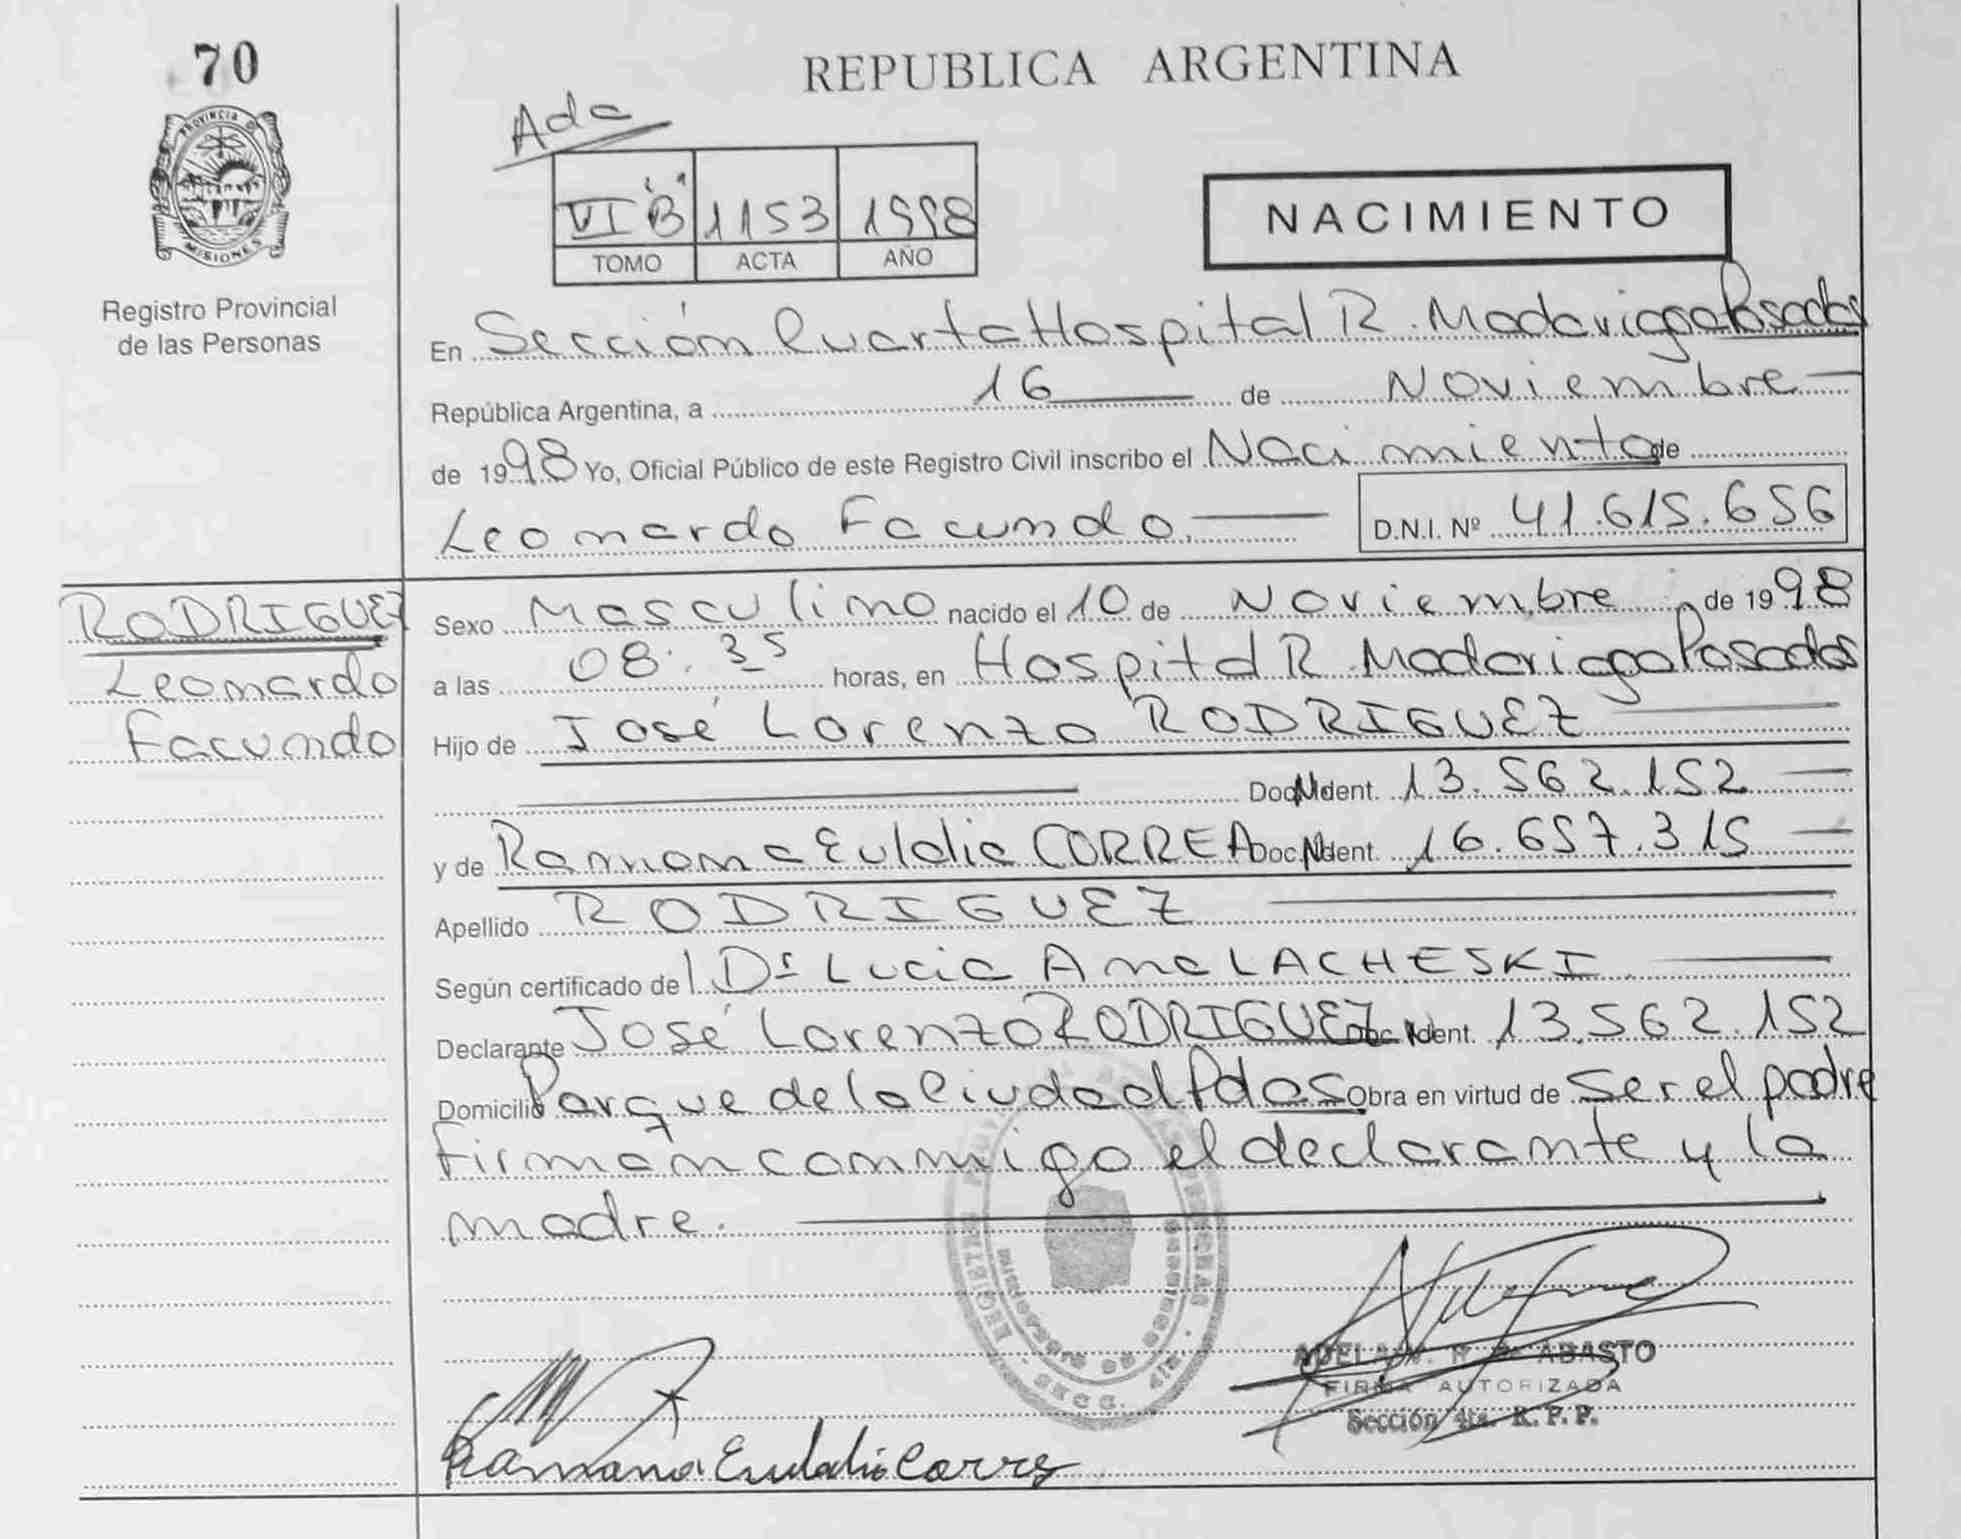 70
PROVINCIA DE
MISIONES
Registro Provincial
de las Personas
REPUBLICA ARGENTINA
Ada
VI "B" 1153 1998
TOMO ACTA AÑO
NACIMIENTO
En Sección Cuarta Hospital R. Madariaga Posadas
República Argentina, a 16 de Noviembre
de 1998 Yo, Oficial Público de este Registro Civil inscribo el Nacimiento de
Leonardo Facundo. D.N.I. Nº 41.615.656
RODRIGUEZ
Leonardo
Facundo
Sexo Masculino nacido el 10 de Noviembre de 1998
a las 08:35 horas, en Hospital R. Madariaga Posadas
Hijo de José Lorenzo RODRIGUEZ
Doc. Ident. 13.562.152
y de Ramona Eulalia CORREA Doc. Ident. 16.657.315
Apellido RODRIGUEZ
Según certificado de Dr Lucia Ana LACHESKI
Declarante José Lorenzo RODRIGUEZ Doc. Ident. 13.562.152
Domicilio Parque de la Ciudad Pdas Obra en virtud de Ser el padre
Firman conmigo el declarante y la
madre.
ABASTO
FIRMA AUTORIZADA
Sección 4ta. R. P. P.
Ramona Eulalia Correa